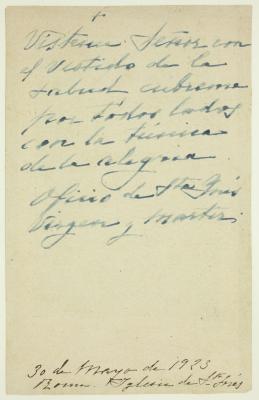 +
Vísteme Señor con
el Vestido de la
salud cúbreme
por todos lados
con la túnica
de la alegria
Oficio de Sta Inés
Virgen y Martir.
30 de Mayo de 1923
Roma. Iglesia de Sta Inés